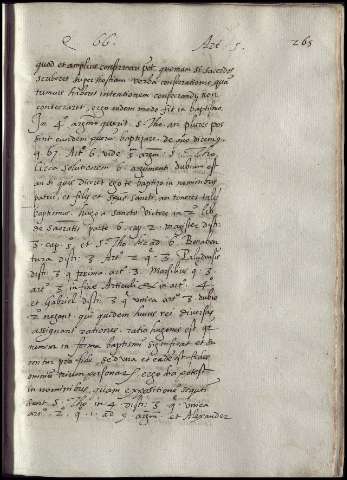 Q 66. Art. 5. 265
quod et amplius confirmari pot. quoniam si sacerdos
scriberet super hostiam verba consecrationis, quā
tumuis haberet intentionem consecrandi, non
consecraret, ergo eodem modo fit in baptismo.
In 5º argum. querit S. Tho. an plures pos
sint eundem puerum baptizare. de quo dicemus
q 67. Art. 6. vide 3 argum.
Circa solutionem 6 argumenti dubium est
an si quis diceret ego te baptizo in nominibus
patris et filij et spus sancti, an teneret talis
baptismus. hugo a sancto victore in 2 lib.
de sacrātis parte 6 cap. 2 magister dist.
3. cap. 5 et S. Tho. hic ad 6. Bonaben
tura dist. 3 Art. 2 q. 3. Paludanus
dist. 3 q prima art. 3. Marsilius q 5
art. 3 in fine Articuli et in art. 4
et Gabriel dist. 3 q vnica art. 3 dubio
2º negant. qui quidem huius rei diversas
assignant rationes. ratio hugonis est q
nomen in forma baptismi significat
fides
omnium trium personarū ergo
in nominibus, quam expositionem sequti
sunt S. Tho. in 4 dist. 3 q vnica
art. 2. q. 1. ad argum. et Alexander